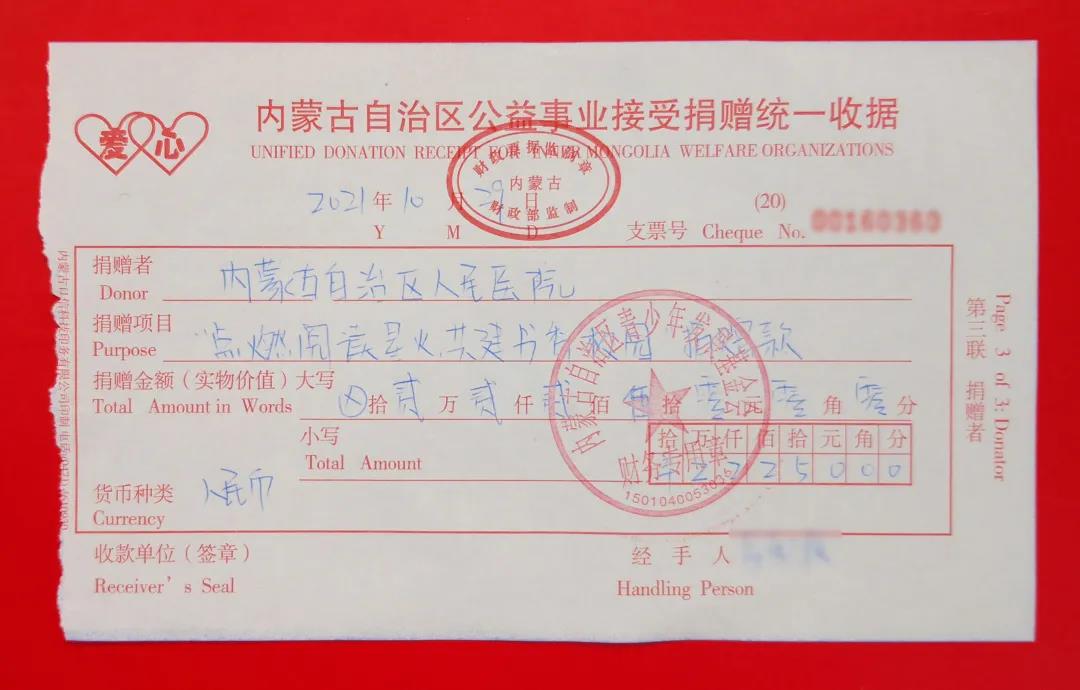 爱心
内蒙古自治区公益事业接受捐赠统一收据
UNIFIED DONATION RECEIPT FOR INNER MONGOLIA WELFARE ORGANIZATIONS
财政票据监制章
内蒙古
财政部监制
2021年10月29日
(20)
Y M D
支票号 Cheque No.
捐赠者 内蒙古自治区人民医院
Donor
捐赠项目 "点燃阅读星火 共建书香校园 捐赠款
Purpose
捐赠金额（实物价值）大写
Total Amount in Words ⊗拾贰万贰仟贰佰伍拾零元零角零分
小写
Total Amount
拾万仟佰拾元角分
22225000
货币种类 人民币
Currency
内蒙古自治区青少年发展基金会
财务专用章
1501040053036
收款单位（签章）
Receiver's Seal
经手人
Handling Person
第三联 捐赠者
Page 3 of 3: Donator